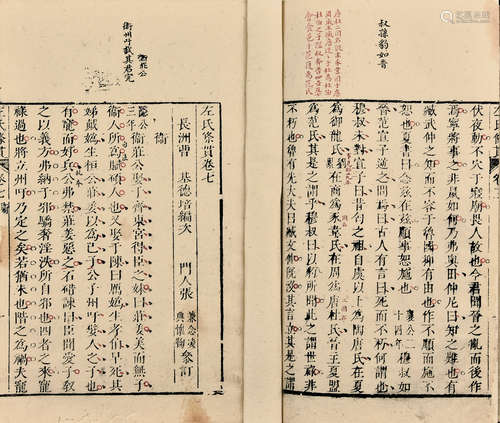 叔孫豹如晉
伏夜動不穴于寢廟畏人故也今君聞晉之亂而後作
焉寧將事之非鼠如何乃弗與田仲尼曰知之難也有
臧武仲之知而不容于魯國抑有由也作不順而施不
恕也夏書曰念茲在茲順事恕施也 襄公二十四年 穆叔如
晉范宣子逆之問焉曰古人有言曰死而不朽何謂也
穆叔未對宣子曰昔匄之祖自虞以上為陶唐氏在夏
為御龍氏在商為豕韋氏在周為唐杜氏晉主夏盟
為范氏其是之謂乎穆叔曰以豹所聞此之謂世祿非
不朽也魯有先大夫曰臧文仲既沒其言立其是之謂
衛州吁弑其君完
左氏條貫卷七
長洲曹 基德培編次 門人張 參訂
衛
隱公三年 衛莊公娶于齊東宮得臣之妹曰莊姜美而無子
衛人所為賦碩人也又娶于陳曰厲媯生孝伯早死其
娣戴媯生桓公莊姜以為己子公子州吁嬖人之子也
有寵而好兵公弗禁莊姜惡之石碏諫曰臣聞愛子敎
之以義方弗納于邪驕奢淫泆所自邪也四者之來寵
祿過也將立州吁乃定之矣若猶未也階之為禍夫寵